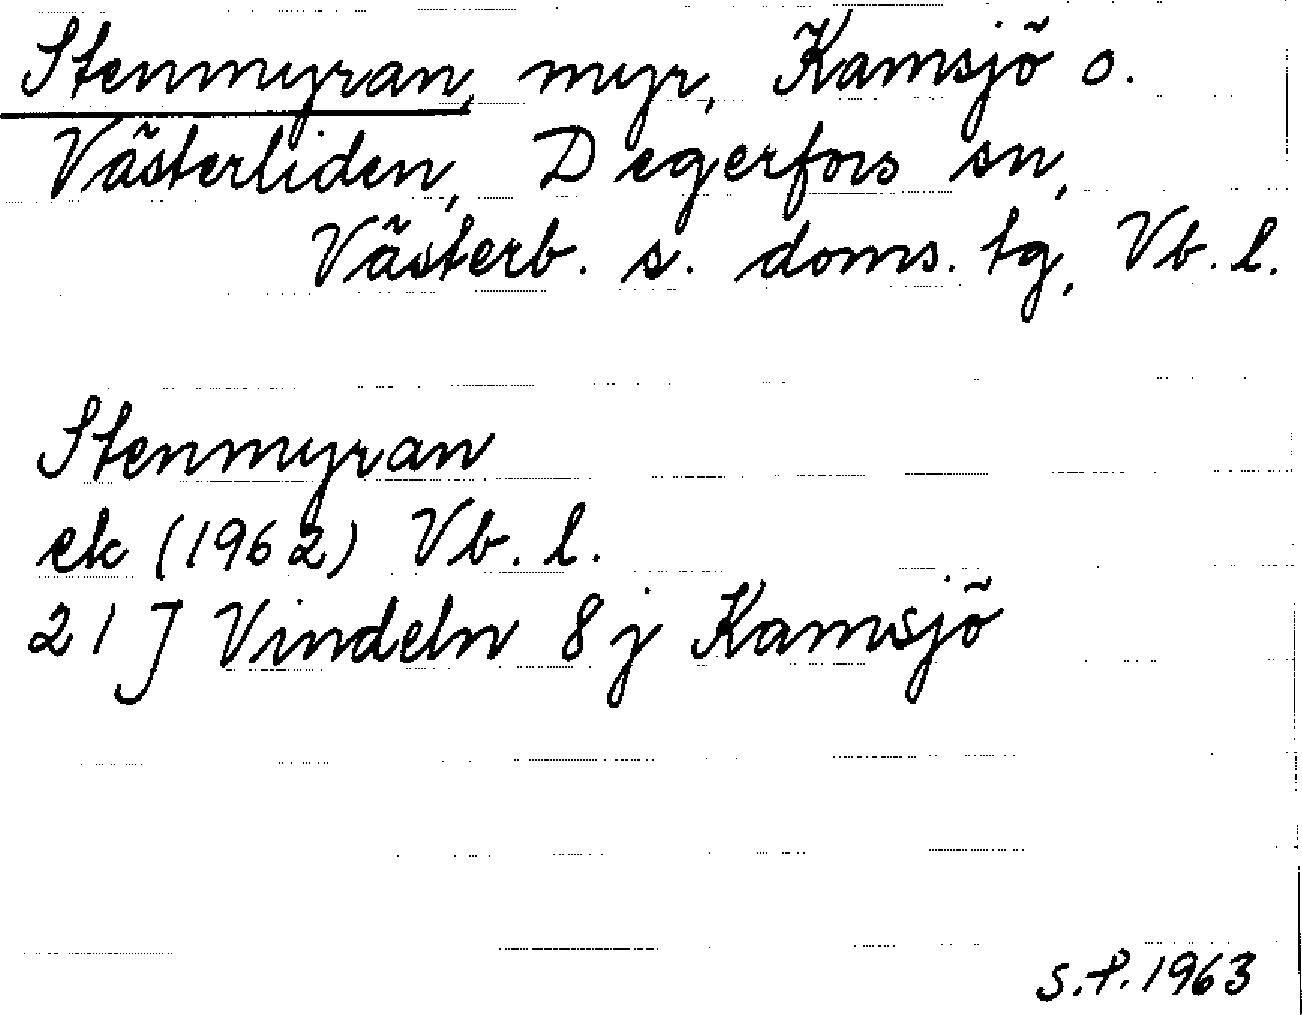 Stenmyran, myr, Kamsjö o.
Västerliden, Degerfors sn,
Västerb. s. doms. tg, Vb. l.
Stenmyran
ek (1962) Vb. l.
21 J Vindeln 8 j Kamsjö
S.P. 1963